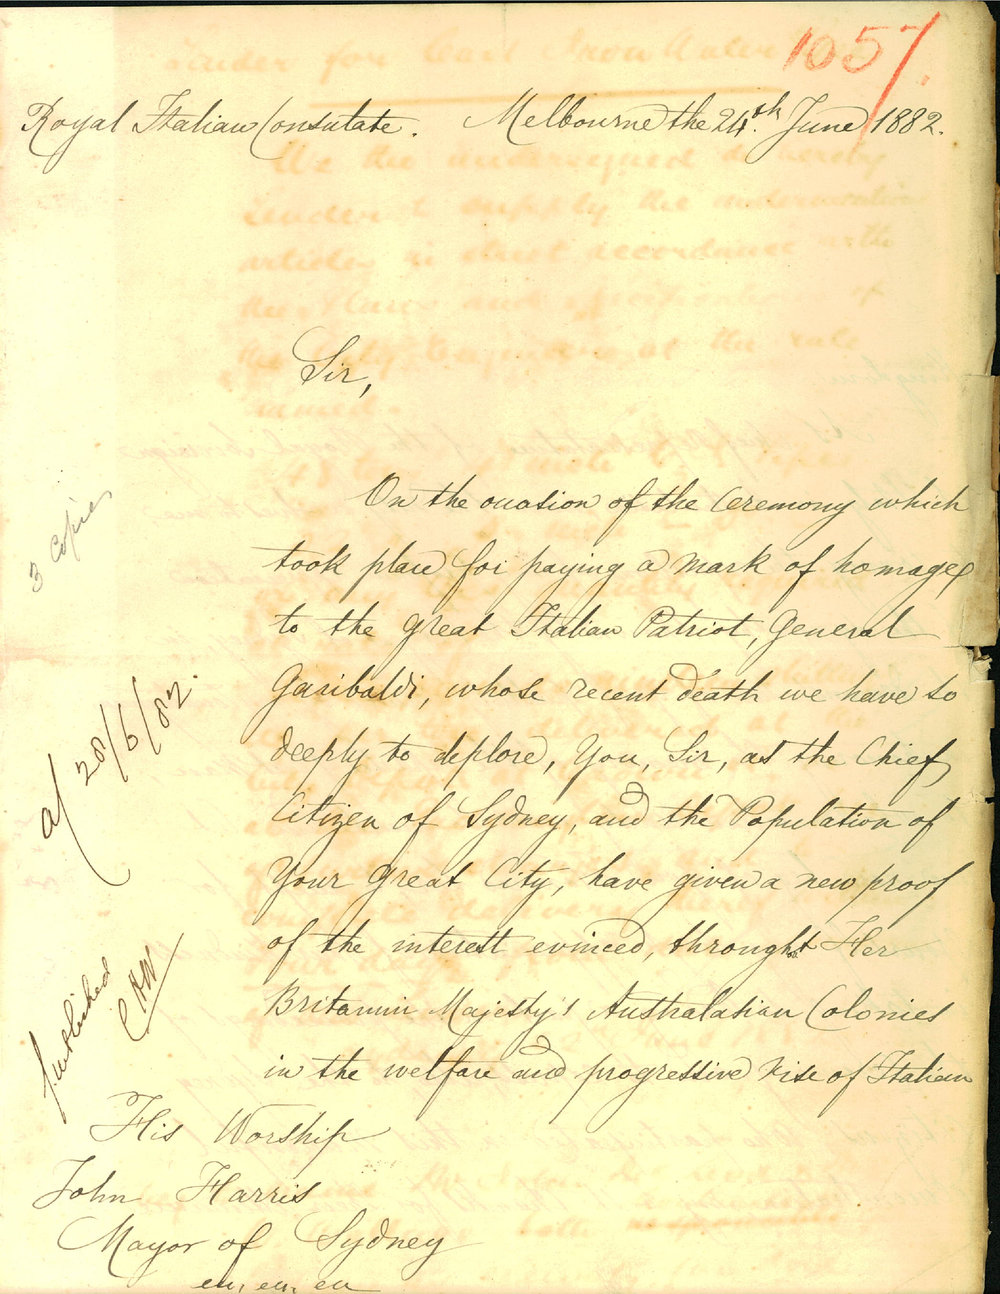 1057.
Royal Italian Consulate. Melbourne the 24th. June 1882.
Sir,
On the occasion of the Ceremony which
took place for paying a mark of homage
to the great Italian Patriot, General
Garibaldi, whose recent death we have so
deeply to deplore, You, Sir, as the Chief
Citizen of Sydney, and the Population of
Your Great City, have given a new proof
of the interest evinced, throughout Her
Britannic Majesty's Australasian Colonies
in the welfare and progressive rise of Italian
3 Copies
28/6/82.
published
His Worship
John Harris
Mayor of Sydney